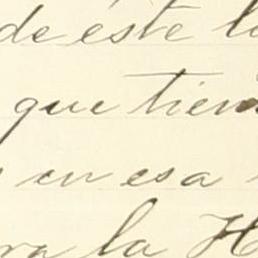 de éste
que tien
en esa
la H